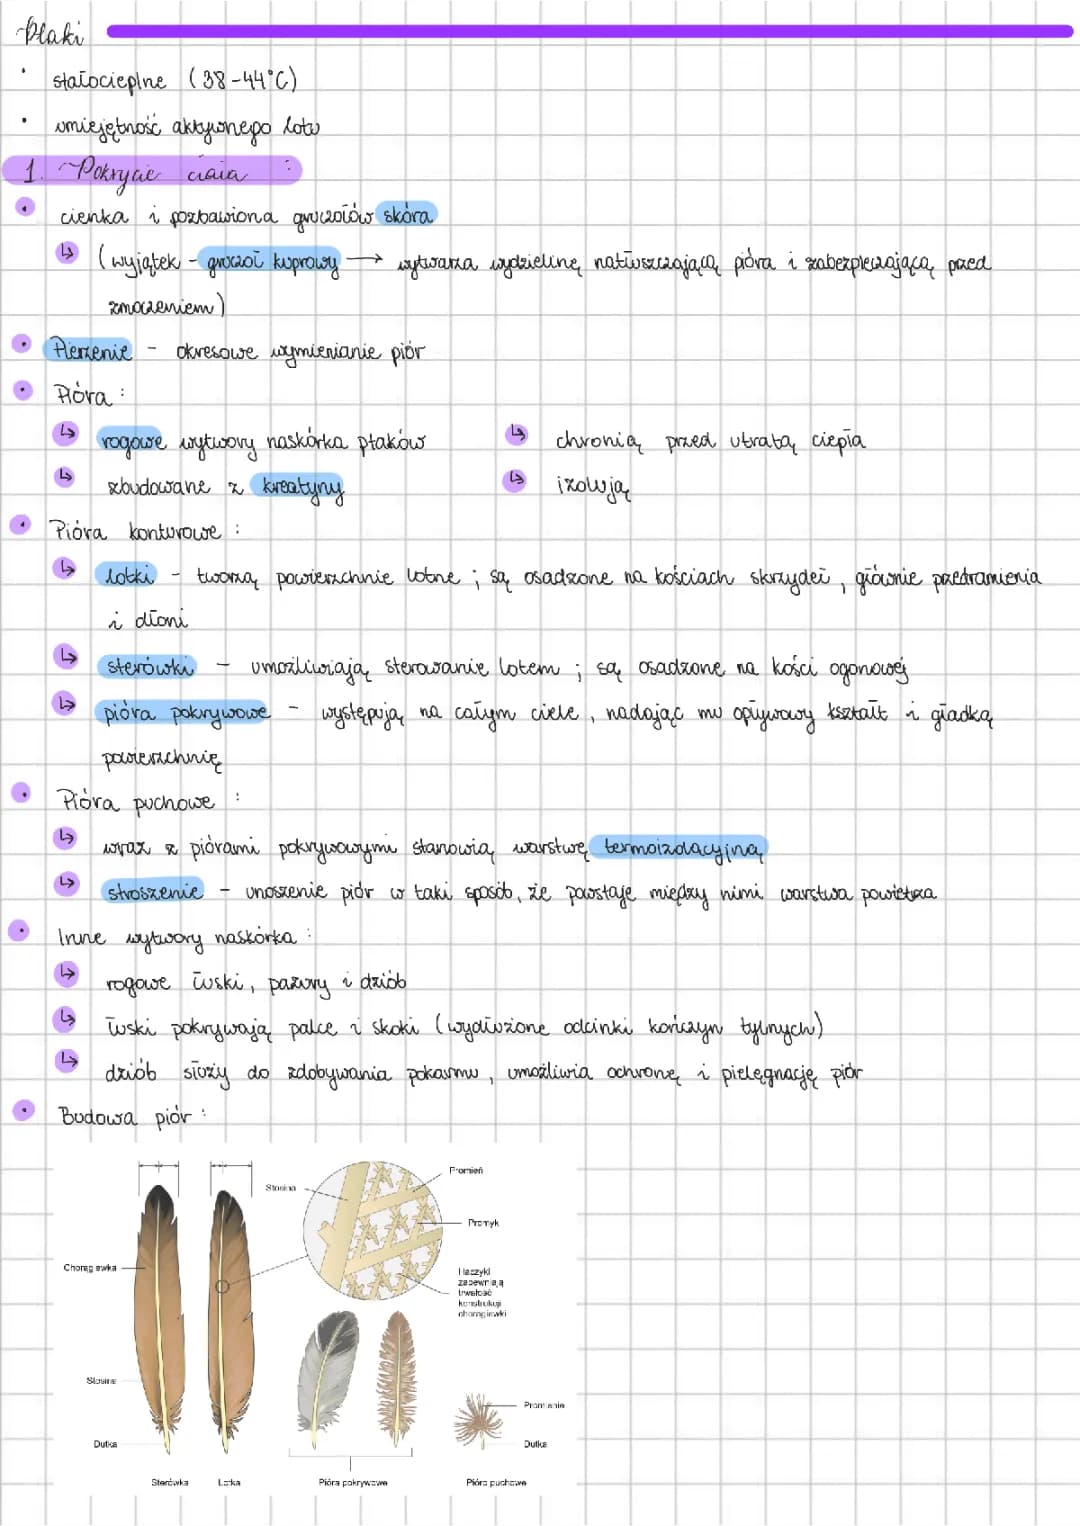 Ptaki
• stałocieplne (38-44°C)
• umiejętność aktywnego lotu
1. Pokrycie ciała :
• cienka i pozbawiona gruczołów skóra
↳ (wyjątek - gruczoł kuprowy → wytwarza wydzielinę natłuszczającą pióra i zabezpieczającą przed
zmoczeniem)
• Pierzenie - okresowe wymienianie piór
• Pióra :
↳ rogowe wytwory naskórka ptaków
↳ zbudowane z kreatyny
↳ chronią przed utratą ciepła
↳ izolują
• Pióra konturowe :
↳ lotki - tworzą powierzchnie lotne ; są osadzone na kościach skrzydeł , głównie przedramienia
i dłoni
↳ sterówki - umożliwiają sterowanie lotem ; są osadzone na kości ogonowej
↳ pióra pokrywowe - występują na całym ciele , nadając mu opływowy kształt i gładką
powierzchnię
• Pióra puchowe :
↳ wraz z piórami pokrywowymi stanowią warstwę termoizolacyjną
↳ stroszenie - unoszenie piór w taki sposób, że powstaje między nimi warstwa powietrza
• Inne wytwory naskórka :
↳ rogowe łuski, pazury i dziób
↳ łuski pokrywają palce i skoki (wydłużone odcinki kończyn tylnych)
↳ dziób służy do zdobywania pokarmu , umożliwia ochronę i pielęgnację piór
• Budowa piór :
Promień
Stosina
Promyk
Chorągiewka
Haczyki
zapewniają
trwałość
konstrukcji
chorągiewki
Stosina
Promienie
Dutka
Dutka
Sterówka
Lotka
Pióra pokrywowe
Pióro puchowe